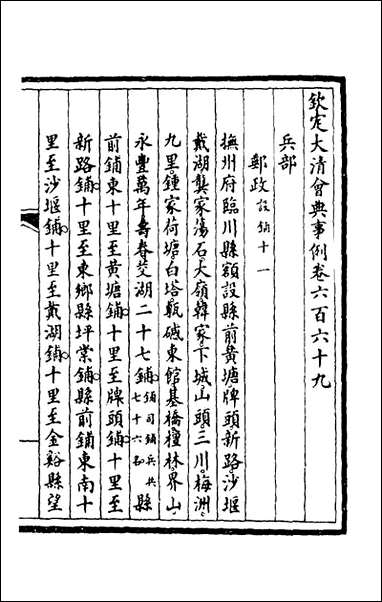 欽定大清會典事例卷六百六十九
兵部
郵政設鋪十一
撫州府臨川縣額設縣前黃塘牌頭新路沙堰
戴湖龔家蕩石大嶺韓家下城山頭三川梅洲
九里鍾家荷塘白塔甎碱東館基橋橦林界山
永豐萬年壽春茭湖二十七鋪鋪司鋪兵共七十六名縣
前鋪東十里至黃塘鋪十里至牌頭鋪十里至
新路鋪十里至東鄉縣坪棠鋪縣前鋪東南十
里至沙堰鋪十里至戴湖鋪十里至金谿縣望